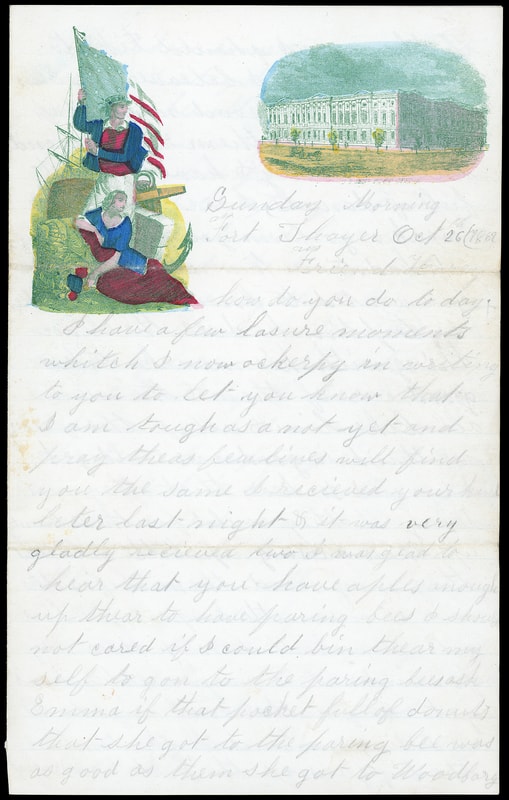 Sunday Morning
Fort Thayer Oct 26
Friend
how do you do to day
I have a few lasure moments
whitch I now ockerpy in writing
to you to let you know that
I am tough as a not yet and
pray theas few lines will find
you the same I recieved your kind
later last night & it was very
gladly recieved two I was glad to
hear that you have aples enough
up thear to have paring bees I
not cared if I could bin thear my
self to gon to the paring bees
Emma if that pocket full of donuts
that she got to the paring bee was
as good as them she got to Woodbury